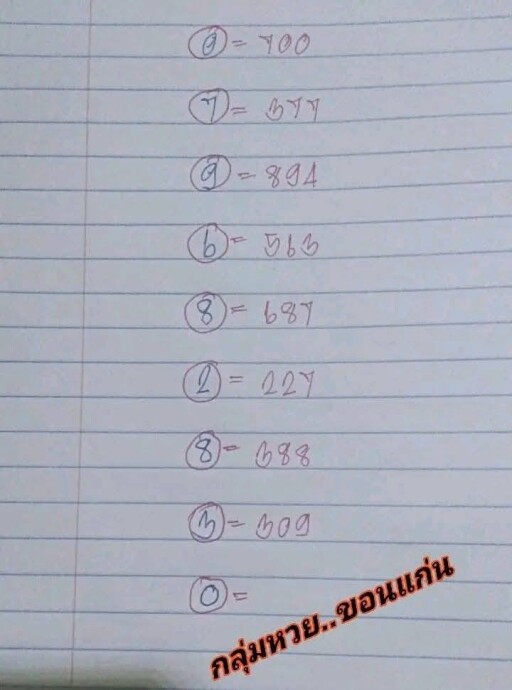 0 = 700
7 = 377
9 = 894
6 = 563
8 = 687
2 = 227
8 = 388
3 = 309
0 =
กลุ่มหวย..ขอนแก่น